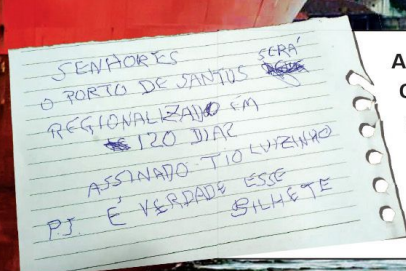 SENHORES
O PORTO DE SANTOS SERÁ
REGIONALIZADO EM
120 DIAS
ASSINADO - TIO LUIZINHO
PS. É VERDADE ESSE
BILHETE
A